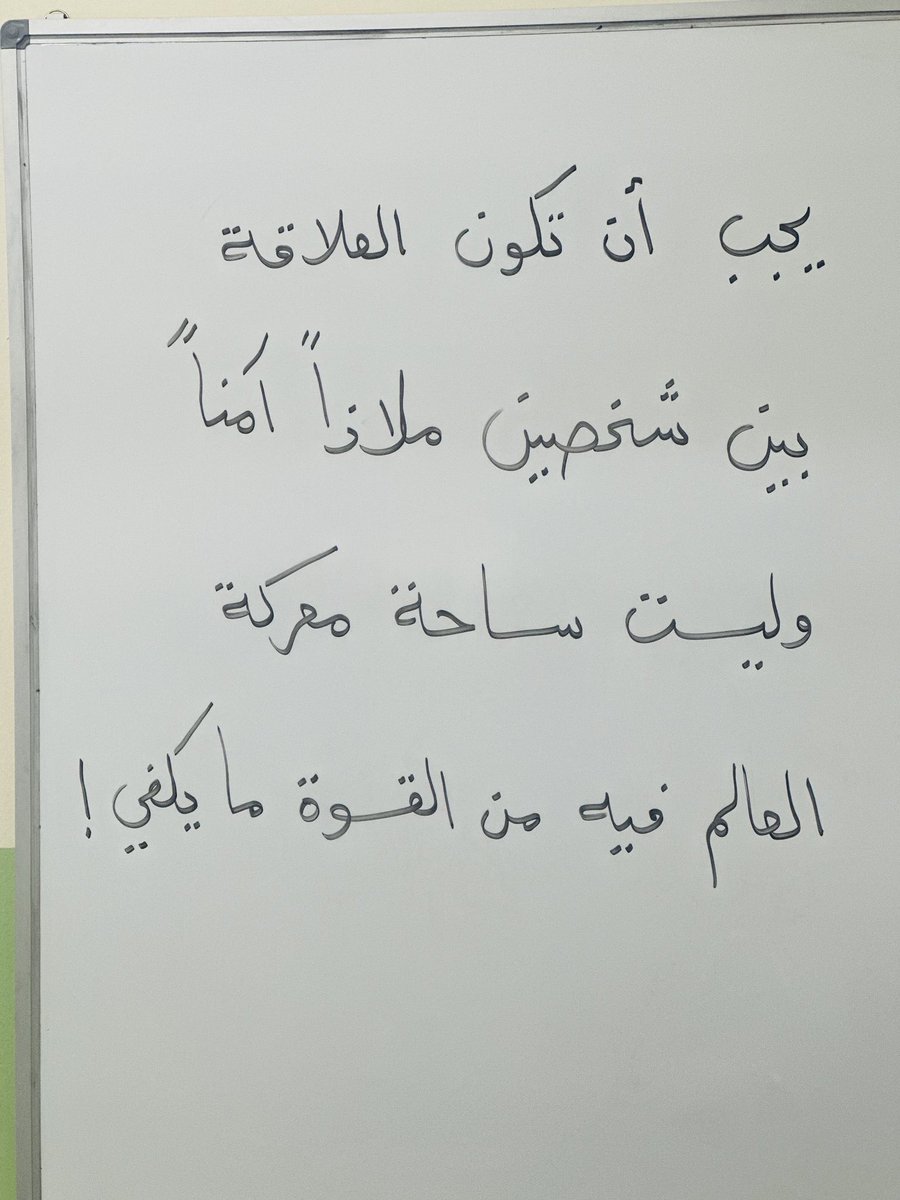 يجب أن تكون العلاقة
بين شخصين ملاذاً آمناً
وليست ساحة معركة
العالم فيه من القوة ما يكفي !